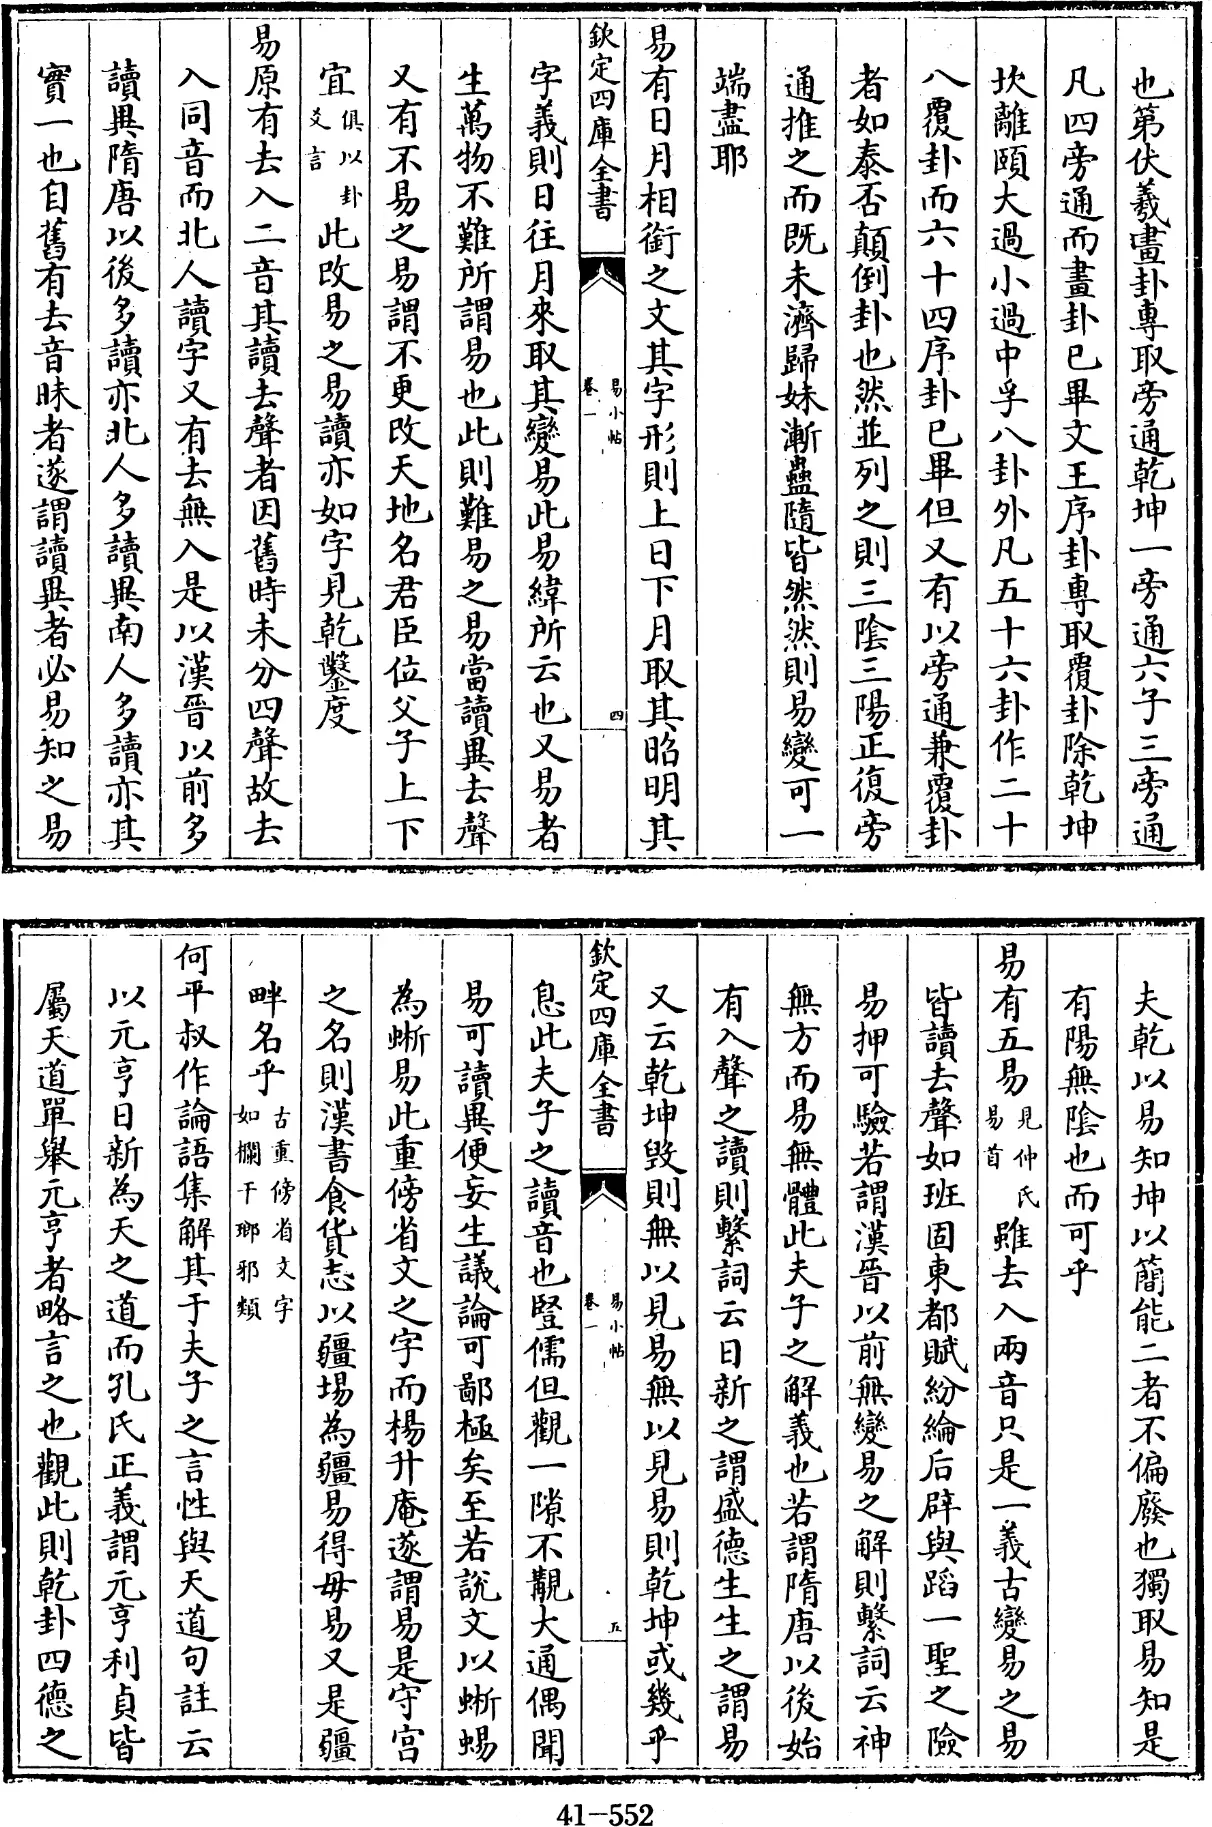 也第伏羲畫卦專取旁通乾坤一旁通六子三旁通
凡四旁通而畫卦已畢文王序卦專取覆卦除乾坤
坎離頤大過小過中孚八卦外凡五十六卦作二十
八覆卦而六十四序卦已畢但又有以旁通兼覆卦
者如泰否顛倒卦也然並列之則三陰三陽正復旁
通推之而既未濟歸妹漸蠱隨皆然然則易變可一
端盡耶
易有日月相銜之文其字形則上日下月取其昭明其
欽定四庫全書 易小帖 卷一 四
字義則日往月來取其變易此易緯所云也又易者
生萬物不難所謂易也此則難易之易當讀異去聲
又有不易之易謂不更改天地名君臣位父子上下
宜俱以卦爻言此改易之易讀亦如字見乾鑿度
易原有去入二音其讀去聲者因舊時未分四聲故去
入同音而北人讀字又有去無入是以漢晉以前多
讀異隋唐以後多讀亦北人多讀異南人多讀亦其
實一也自舊有去音昧者遂謂讀異者必易知之易
夫乾以易知坤以簡能二者不偏廢也獨取易知是
有陽無陰也而可乎
易有五易見仲氏易首雖去入兩音只是一義古變易之易
皆讀去聲如班固東都賦紛綸后辟與蹈一聖之險
易押可驗若謂漢晉以前無變易之解則繫詞云神
無方而易無體此夫子之解義也若謂隋唐以後始
有入聲之讀則繫詞云日新之謂盛德生生之謂易
又云乾坤毀則無以見易無以見易則乾坤或幾乎
欽定四庫全書 易小帖 卷一 五
息此夫子之讀音也豎儒但觀一隙不覩大通偶聞
易可讀異便妄生議論可鄙極矣至若說文以蜥蜴
為蜥易此重傍省文之字而楊升庵遂謂易是守宮
之名則漢書食貨志以疆場為疆易得毋易又是疆
畔名乎古重傍省文字如欄干瑯邪類
何平叔作論語集解其于夫子之言性與天道句註云
以元亨日新為天之道而孔氏正義謂元亨利貞皆
屬天道單舉元亨者略言之也觀此則乾卦四德之
41-552